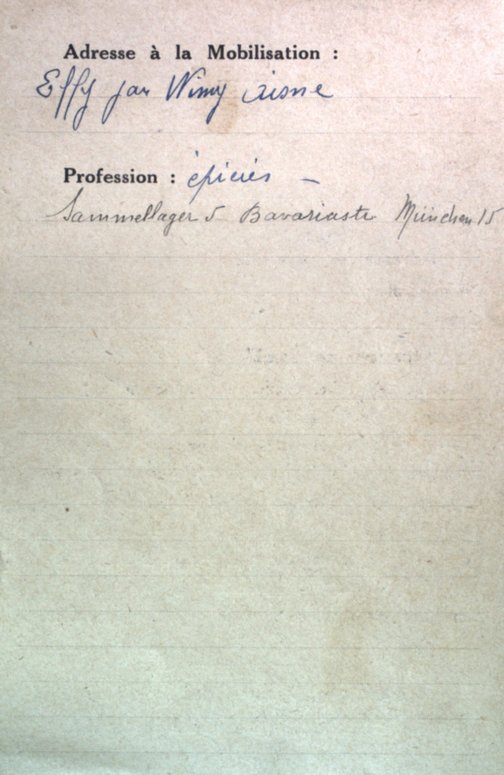 Adresse à la Mobilisation :
Effy par Wimy Aisne
Profession : épiciés –
Sammellager 5 Bavariastr München 15